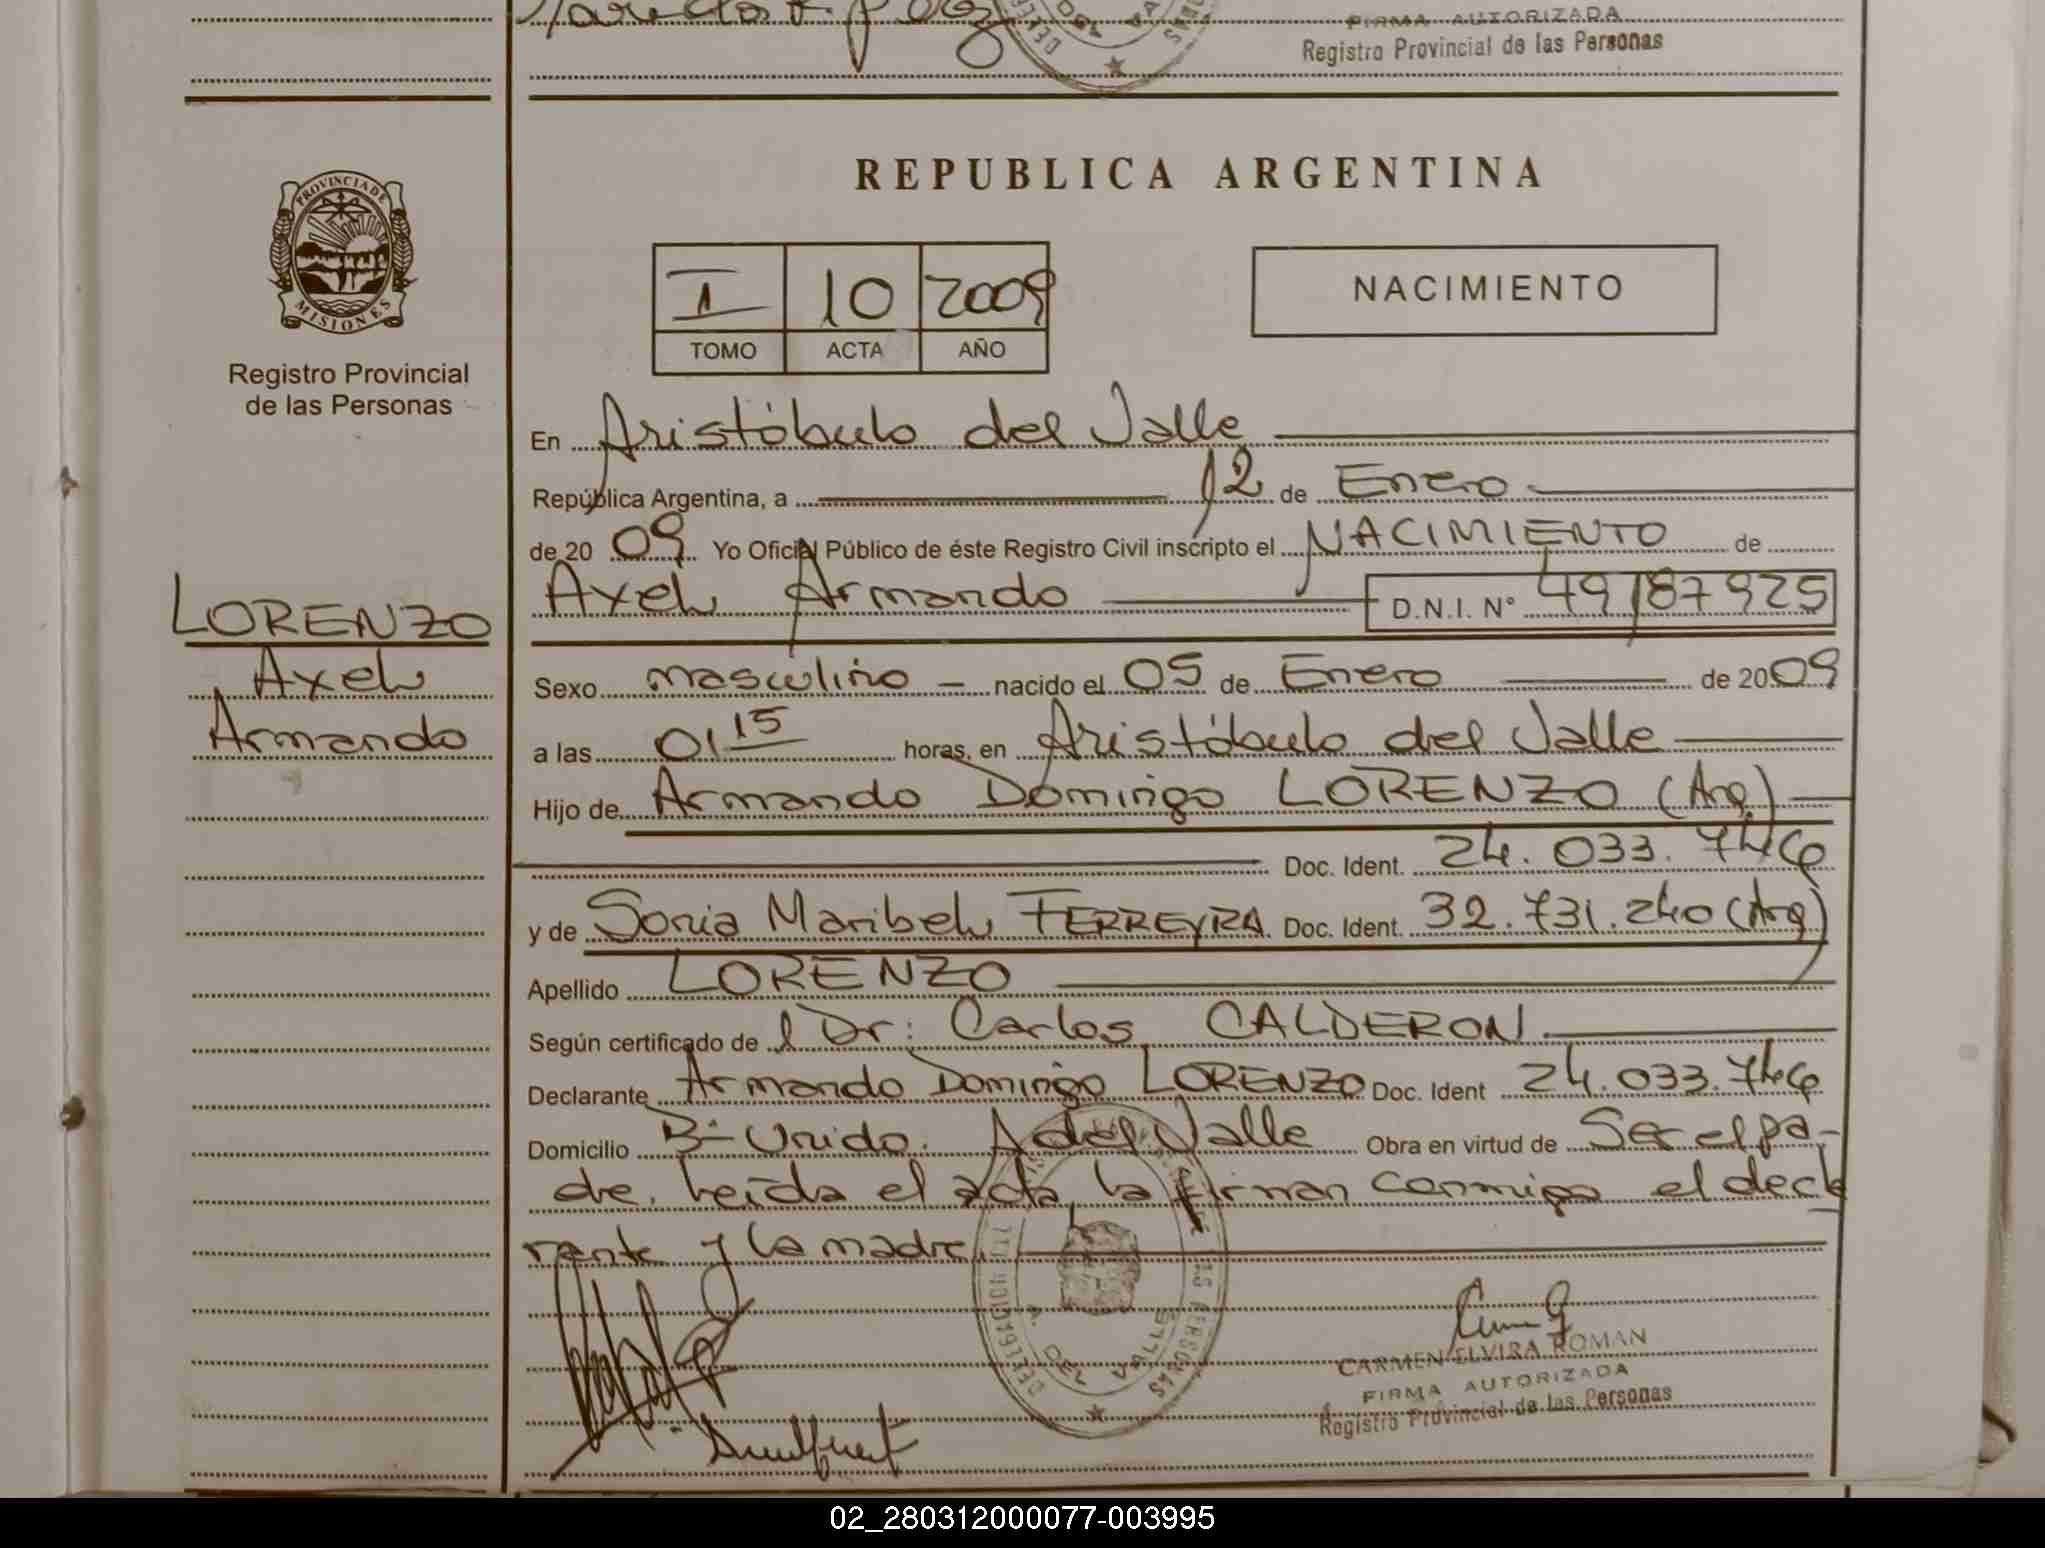 FIRMA AUTORIZADA
Registro Provincial de las Personas
PROVINCIA DE
MISIONES
Registro Provincial
de las Personas
REPUBLICA ARGENTINA
I 10 2009
TOMO ACTA AÑO
NACIMIENTO
En Aristóbulo del Valle
República Argentina, a 12 de Enero
de 20 09 Yo Oficial Público de éste Registro Civil inscripto el NACIMIENTO de
Axel Armando D.N.I. N° 49187925
LORENZO
Axel
Armando
Sexo masculino - nacido el 05 de Enero de 2009
a las 01 15 horas, en Aristóbulo del Valle
Hijo de Armando Domingo LORENZO (Arg)
Doc. Ident. 24.033.746
y de Sonia Maribel FERREYRA Doc. Ident. 32.731.240 (Arg)
Apellido LORENZO
Según certificado de l Dr: Carlos CALDERON
Declarante Armando Domingo LORENZO Doc. Ident 24.033.746
Domicilio B- Unido. A del Valle Obra en virtud de Ser el pa-
dre. Leída el acta la firman conmigo el decla
rante y la madre
A. DEL VALLE
CARMEN ELVIRA ROMAN
FIRMA AUTORIZADA
Registro Provincial de las Personas
02_280312000077-003995